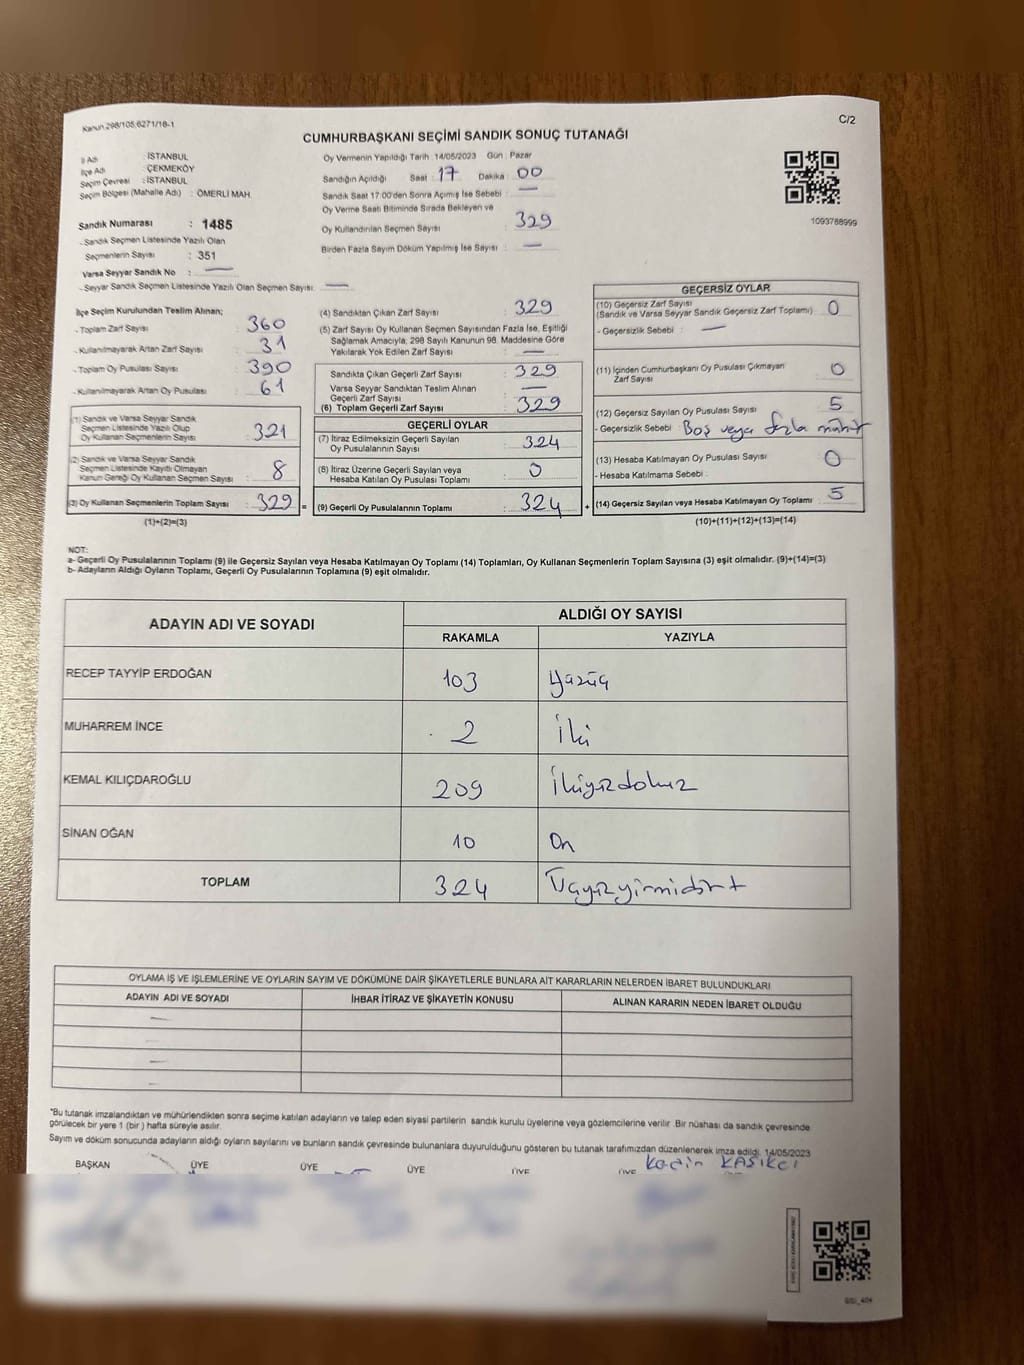 Kanun 298/105,6271/18-1
C/2
CUMHURBAŞKANI SEÇİMİ SANDIK SONUÇ TUTANAĞI
İl Adı : İSTANBUL
İlçe Adı : ÇEKMEKÖY
Seçim Çevresi : İSTANBUL
Seçim Bölgesi (Mahalle Adı) : ÖMERLİ MAH.
Sandık Numarası : 1485
- Sandık Seçmen Listesinde Yazılı Olan
Seçmenlerin Sayısı : 351
Varsa Seyyar Sandık No : —
- Seyyar Sandık Seçmen Listesinde Yazılı Olan Seçmen Sayısı: —
Oy Vermenin Yapıldığı Tarih : 14/05/2023 Gün : Pazar
Sandığın Açıldığı Saat : 17 Dakika : 00
Sandık Saat 17.00'den Sonra Açılmış İse Sebebi : —
Oy Verme Saati Bitiminde Sırada Bekleyen ve
Oy Kullandırılan Seçmen Sayısı : 329
Birden Fazla Sayım Döküm Yapılmış İse Sayısı : —
1093788999
İlçe Seçim Kurulundan Teslim Alınan;
- Toplam Zarf Sayısı : 360
- Kullanılmayarak Artan Zarf Sayısı : 31
- Toplam Oy Pusulası Sayısı : 390
- Kullanılmayarak Artan Oy Pusulası : 61
(1) Sandık ve Varsa Seyyar Sandık
Seçmen Listesinde Yazılı Olup
Oy Kullanan Seçmenlerin Sayısı : 321
(2) Sandık ve Varsa Seyyar Sandık
Seçmen Listesinde Kayıtlı Olmayan
Kanun Gereği Oy Kullanan Seçmen Sayısı : 8
(3) Oy Kullanan Seçmenlerin Toplam Sayısı : 329 =
(1)+(2)=(3)
(4) Sandıktan Çıkan Zarf Sayısı : 329
(5) Zarf Sayısı Oy Kullanan Seçmen Sayısından Fazla İse, Eşitliği
Sağlamak Amacıyla, 298 Sayılı Kanunun 98. Maddesine Göre
Yakılarak Yok Edilen Zarf Sayısı : —
Sandıkta Çıkan Geçerli Zarf Sayısı : 329
Varsa Seyyar Sandıktan Teslim Alınan
Geçerli Zarf Sayısı : —
(6) Toplam Geçerli Zarf Sayısı : 329
GEÇERLİ OYLAR
(7) İtiraz Edilmeksizin Geçerli Sayılan
Oy Pusulasının Sayısı : 324
(8) İtiraz Üzerine Geçerli Sayılan veya
Hesaba Katılan Oy Pusulası Toplamı : 0
(9) Geçerli Oy Pusulalarının Toplamı : 324 +
GEÇERSİZ OYLAR
(10) Geçersiz Zarf Sayısı
(Sandık ve Varsa Seyyar Sandık Geçersiz Zarf Toplamı) : 0
- Geçersizlik Sebebi : —
(11) İçinden Cumhurbaşkanı Oy Pusulası Çıkmayan
Zarf Sayısı : 0
(12) Geçersiz Sayılan Oy Pusulası Sayısı : 5
- Geçersizlik Sebebi : Boş veya fazla mühür
(13) Hesaba Katılmayan Oy Pusulası Sayısı : 0
- Hesaba Katılmama Sebebi :
(14) Geçersiz Sayılan veya Hesaba Katılmayan Oy Toplamı : 5
(10)+(11)+(12)+(13)=(14)
NOT:
a- Geçerli Oy Pusulalarının Toplamı (9) ile Geçersiz Sayılan veya Hesaba Katılmayan Oy Toplamı (14) Toplamları, Oy Kullanan Seçmenlerin Toplam Sayısına (3) eşit olmalıdır. (9)+(14)=(3)
b- Adayların Aldığı Oyların Toplamı, Geçerli Oy Pusulalarının Toplamına (9) eşit olmalıdır.
ADAYIN ADI VE SOYADI
ALDIĞI OY SAYISI
RAKAMLA YAZIYLA
RECEP TAYYİP ERDOĞAN 103 Yüzüç
MUHARREM İNCE 2 İki
KEMAL KILIÇDAROĞLU 209 İkiyüzdokuz
SİNAN OĞAN 10 On
TOPLAM 324 Üçyüzyirmidört
OYLAMA İŞ VE İŞLEMLERİNE VE OYLARIN SAYIM VE DÖKÜMÜNE DAİR ŞİKAYETLERLE BUNLARA AİT KARARLARIN NELERDEN İBARET BULUNDUKLARI
ADAYIN ADI VE SOYADI İHBAR İTİRAZ VE ŞİKAYETİN KONUSU ALINAN KARARIN NEDEN İBARET OLDUĞU
—
—
—
—
"Bu tutanak imzalandıktan ve mühürlendikten sonra seçime katılan adayların ve talep eden siyasi partilerin sandık kurulu üyelerine veya gözlemcilerine verilir. Bir nüshası da sandık çevresinde
görülecek bir yere 1 (bir ) hafta süreyle asılır.
Sayım ve döküm sonucunda adayların aldığı oyların sayılarını ve bunların sandık çevresinde bulunanlara duyurulduğunu gösteren bu tutanak tarafımızdan düzenlenerek imza edildi. 14/05/2023
BAŞKAN ÜYE ÜYE ÜYE ÜYE ÜYE
KAŞIKCI